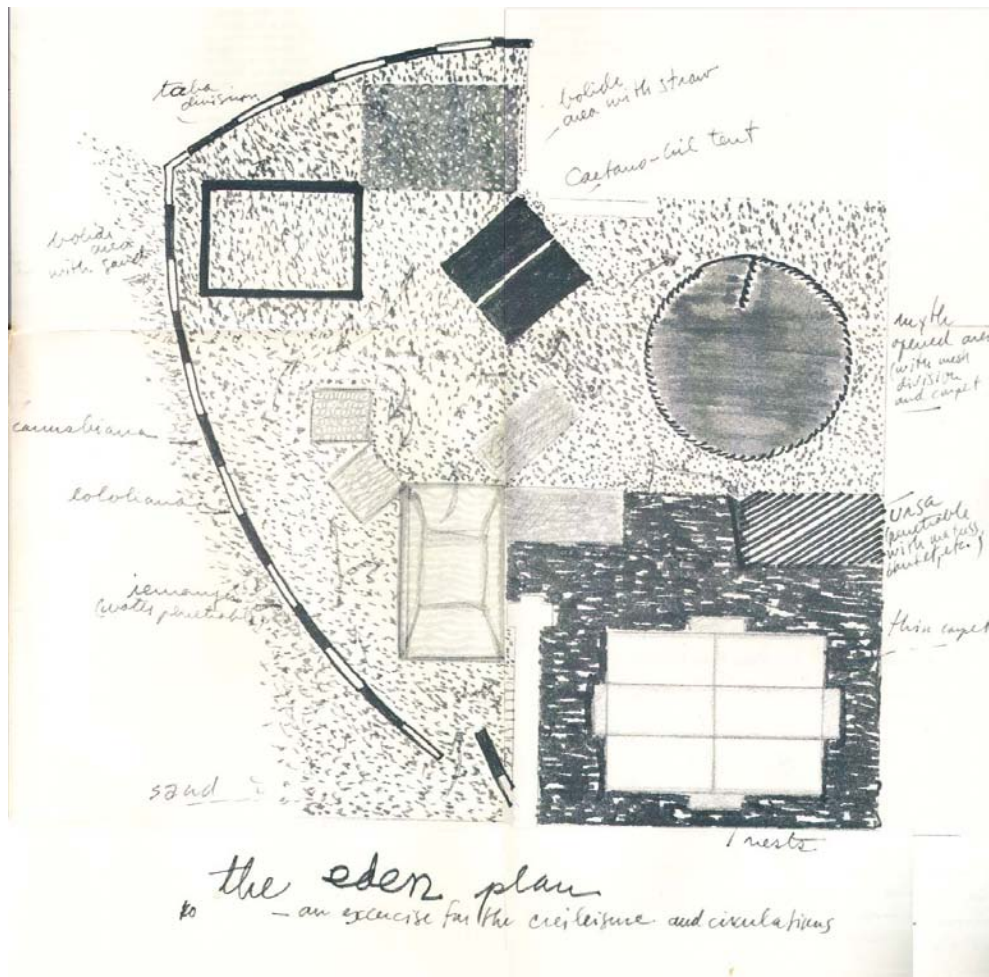 taba
division
bolide
area with straw
Caetano-Gil tent
bolide
area
with sand
myth
opened area
(with mesh
division
and carpet
cannabiana
lololiana
iemanjá
(water penetrable)
ursa
(penetrable
with
etc.)
thin carpet
sand
nests
the eden plan
— an exercise for the creileisure and circulations